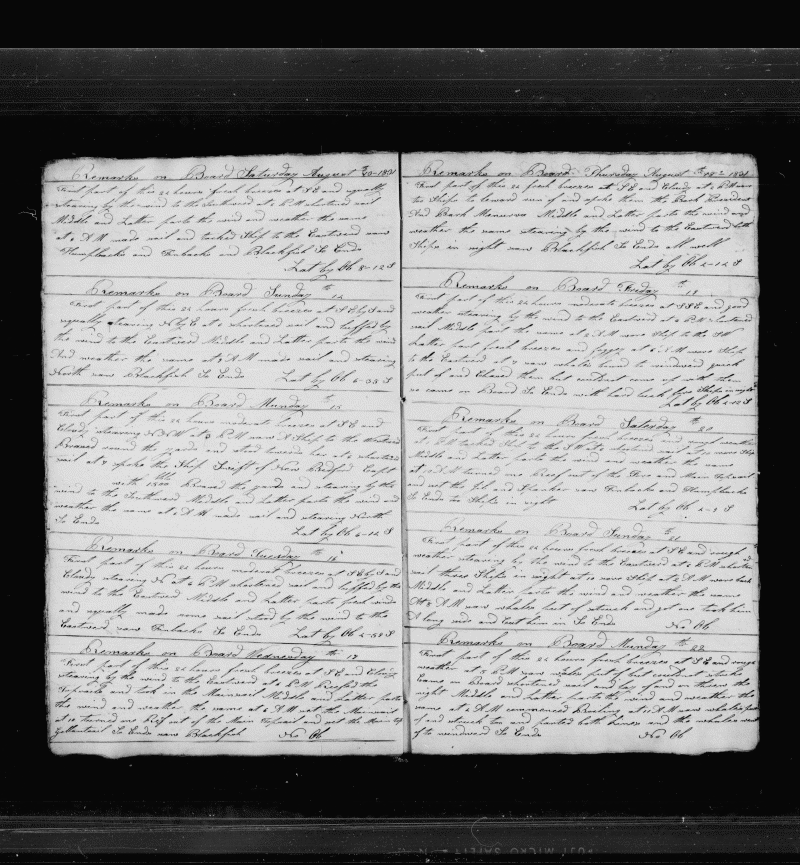 Remarks on Board Saturday August 1831
First part of this 24 hours fresh breezes at S E and squally
steering by the wind to the Southward at 6 P M shortened sail
Middle and Latter parts the wind and weather the same
at 6 A M made sail and tacked Ship to the Eastward saw
Humpbacks and Finbacks and Blackfish So Ends
Lat by Ob 8-12 S
Remarks on Board Sunday th 14
First part of this 24 hours fresh breezes at S E by S and
squally steering N by E at 6 shortened sail and luffed by
the wind to the Eastward Middle and Latter parts the wind
And weather the same at 6 A M made sail and steering
North saw Blackfish So Ends Lat by Ob 6-38 S
Remarks on Board Monday th 15
First part of this 24 hours moderate breezes at S E and
Cloudy steering N N W at 3 P M saw A Ship to the
Braced round the yards and stood towards her at 6 shortened
sail at 7 spoke the Ship Swift of New Bedford Capt
with 1500 bbls Braced the yards and steering by the
wind to the Southward Middle and Latter parts the wind and
weather the same at 6 A M made sail and steering North
So Ends Lat by Ob 6-12 S
Remarks on Board Tuesday th 16
First part of this 24 hours moderate breezes at S E by S and
Cloudy steering N at 6 P M shortened sail and luffed by the
wind to the Eastward Middle and Latter parts fresh winds
and squally made some sail stood by the wind to the
Eastward saw Finbacks So Ends Lat by Ob 4-50 S
Remarks on Board Wednesday th 17
First part of this 24 hours fresh breezes at S E and Cloudy
steering by the wind to the Eastward at 6 P M Reefed the
Topsails and took in the Mainsail Middle and Latter parts
the wind and weather the same at 6 A M set the Mainsail
at 10 turned one Reef out of the Main Topsail and set the Main
Gallantsail So Ends saw Blackfish No Ob
Remarks on Board Thursday August th 18 1831
First part of this 24 fresh breezes at S E and Cloudy at 2 P M saw
two Ships to leeward run of and spoke them the Bark
And Bark Minerva Middle and Latter parts the wind and
weather the same steering by the wind to the Eastward both
Ships in sight saw Blackfish So Ends All well
Lat by Ob 4-12 S
Remarks on Board Friday th 19
First part of this 24 hours moderate breezes at S S E and good
weather steering by the wind to the Eastward at 6 P M shortened
sail Middle part the same at 2 A M wore Ship to the S W
Latter part fresh breezes and foggy at 6 A M wore Ship
to the Eastward at 7 saw whales bound to windward quick
put of and Chased them but couldnt come up with them
so came on Board So Ends with hard luck two Ships in sight
Lat by Ob 4-12 S
Remarks on Board Saturday th 20
First part of this 24 hours fresh breezes and rough weather
at P M tacked Ship to the S W at 6 shortened sail at 10 wore Ship
Middle and Latter parts the wind and weather the same
at 6 A M turned one Reef out of the Fore and Main Topsail
and set the Jib and Spanker saw Finbacks and Humpbacks
So Ends two Ships in sight Lat by Ob 4-1 S
Remarks on Board Sunday th 21
First part of this 24 hours fresh breezes at S E and rough
weather steering by the wind to the Eastward at 6 P M shortened
sail three Ships in sight at 10 wore Ship at 2 A M wore back
Middle and Latter parts the wind and weather the same
At 8 A M saw whales put of struck and got one took him
A long side and Cut him in So Ends No Ob
Remarks on Board Munday th 22
First part of this 24 hours fresh breezes at S E and rough
weather at 3 P M saw whales put of but couldnt strike
Came on Board shortened sail and lay of and on three in
sight Middle and Latter parts the wind and weather the
same at 6 A M commenced Boiling at 10 A M saw whales put
of and struck two and parted both lines and the whales went
of to windward So Ends No Ob